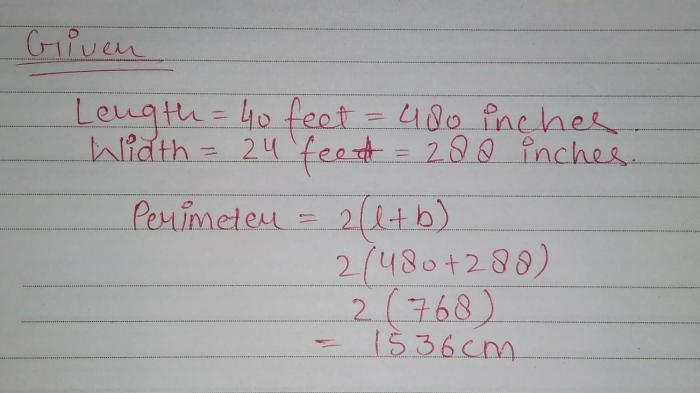 Given
Length = 40 feet = 480 inches.
Width = 24 feet = 288 inches.
Perimeter = 2(l+b)
2(480+288)
2(768)
= 1536cm